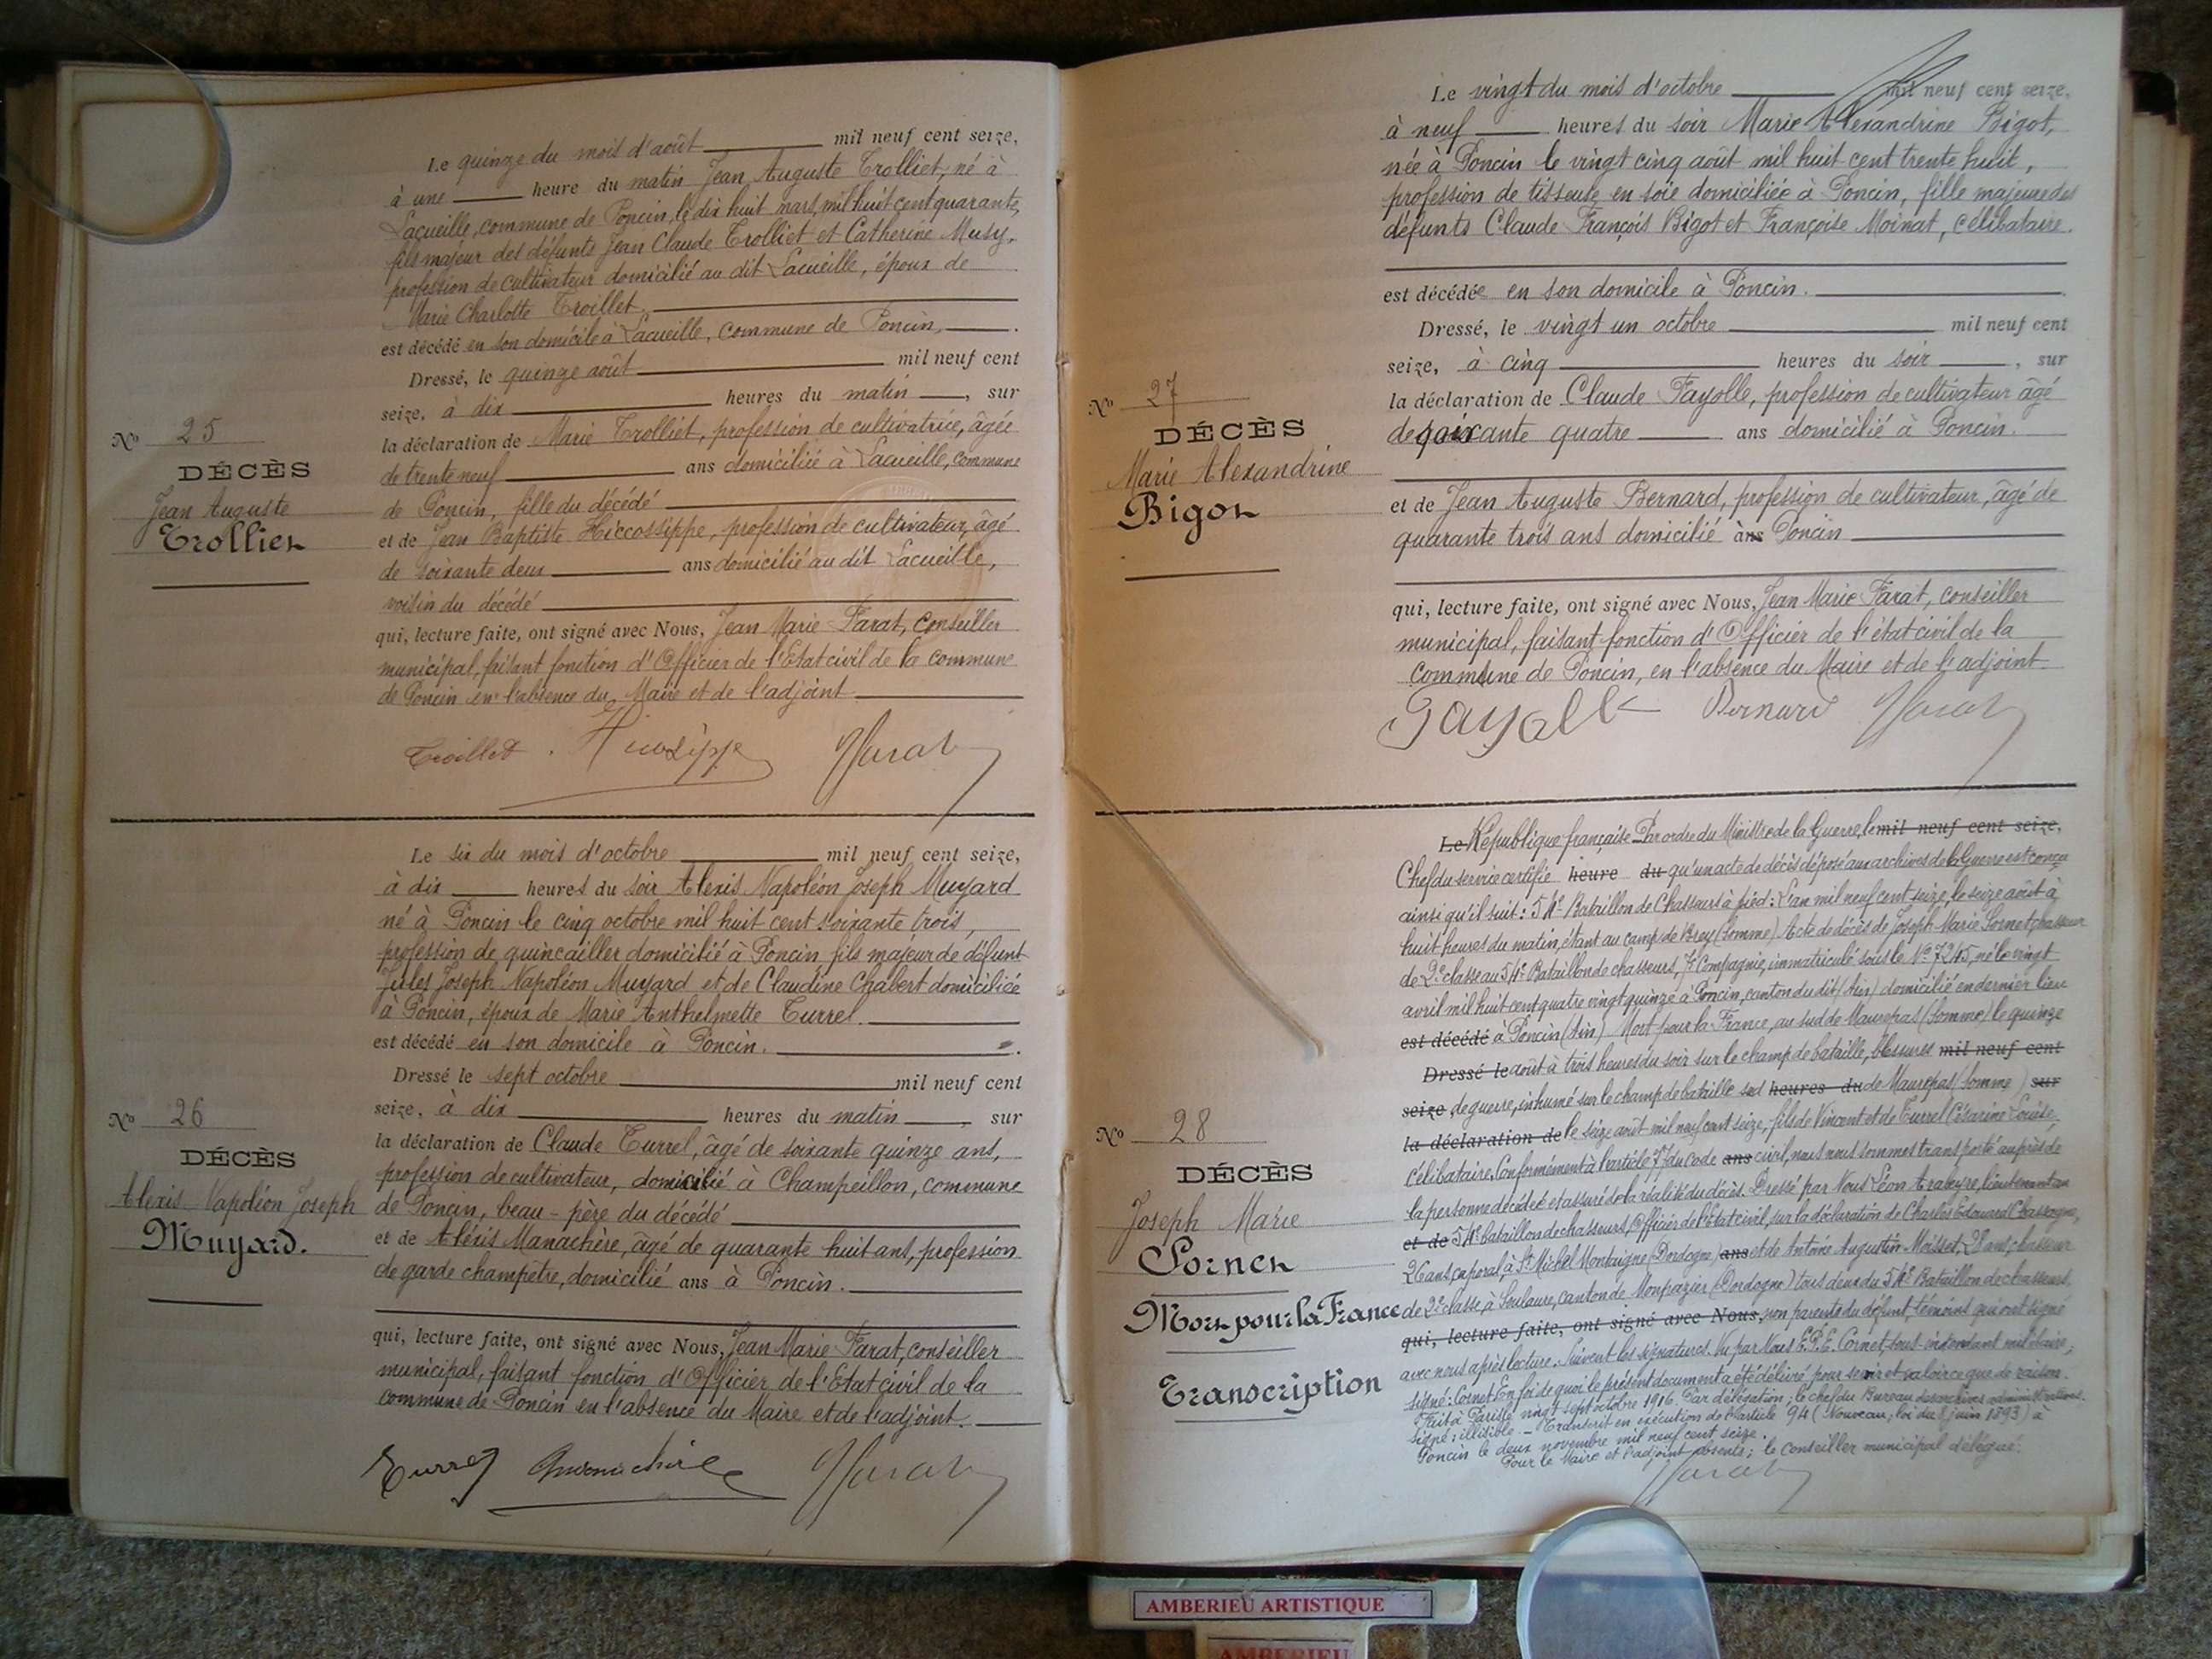 Le quinze du mois d'août mil neuf cent seize,
à une heure du matin Jean Auguste Trolliet, né à
Lacueille, commune de Poncin, le dix huit mars, mil huit cent quarante,
fils majeur des défunts Jean Claude Trolliet et Catherine Musy,
profession de cultivateur domicilié au dit Lacueille, époux de
Marie Charlotte Troillet.
est décédé en son domicile à Lacueille, commune de Poncin,
Dressé, le quinze août mil neuf cent
seize, à dix heures du matin, sur
la déclaration de Marie Trolliet, profession de cultivatrice, âgée
de trente neuf ans domiciliée à Lacueille, commune
de Poncin, fille du décédé
et de Jean Baptiste Hiccossippe, profession de cultivateur, âgé
de soixante deux ans domicilié au dit Lacueille,
voisin du décédé
qui, lecture faite, ont signé avec Nous, Jean Marie Farat, conseiller
municipal, faisant fonction d'Officier de l'Etat civil de la commune
de Poncin en l'absence du Maire et de l'adjoint
Troillet. Farat
Nº 25
DÉCÈS
Jean Auguste
Trolliet
Le six du mois d'octobre mil neuf cent seize,
à dix heures du soir Alexis Napoléon Joseph Muyard
né à Poncin le cinq octobre mil huit cent soixante trois,
profession de quincailler domicilié à Poncin fils majeur de défunt
Jules Joseph Napoléon Muyard et de Claudine Chabert domiciliée
à Poncin, époux de Marie Anthelmette Turrel.
est décédé en son domicile à Poncin.
Dressé le sept octobre mil neuf cent
seize, à dix heures du matin, sur
la déclaration de Claude Turrel, âgé de soixante quinze ans,
profession de cultivateur, domicilié à Champeillon, commune
de Poncin, beau-père du décédé
et de Aléxis Manachère, âgé de quarante huit ans, profession
de garde champêtre, domicilié ans à Poncin.
qui, lecture faite, ont signé avec Nous, Jean Marie Farat, conseiller
municipal, faisant fonction d'Officier de l'Etat civil de la
commune de Poncin en l'absence du Maire et de l'adjoint.
Turrel Farat
Nº 26
DÉCÈS
Alexis Napoléon Joseph
Muyard.
Le vingt du mois d'octobre mil neuf cent seize,
à neuf heures du soir Marie Alexandrine Bigot,
née à Poncin le vingt cinq août mil huit cent trente huit,
profession de tisseuse en soie domiciliée à Poncin, fille majeure des
défunts Claude François Bigot et Françoise Moinat, célibataire.
est décédée en son domicile à Poncin.
Dressé, le vingt un octobre mil neuf cent
seize, à cinq heures du soir, sur
la déclaration de Claude Fayolle, profession de cultivateur âgé
de soixante quatre ans domicilié à Poncin.
et de Jean Auguste Bernard, profession de cultivateur, âgé de
quarante trois ans domicilié à ans Poncin
qui, lecture faite, ont signé avec Nous, Jean Marie Farat, conseiller
municipal, faisant fonction d'Officier de l'état civil de la
commune de Poncin, en l'absence du Maire et de l'adjoint
Fayolle Bernard Farat
Nº 27
DÉCÈS
Marie Alexandrine
Bigot
Le République française Par ordre du Ministre de la Guerre, le mil neuf cent seize,
Chef du service certifie heure du qu'un acte de décès déposé aux archives de la Guerre est conçu
ainsi qu'il suit: 54e Bataillon de Chasseurs à pied: L'an mil neuf cent seize, le seize août à
huit heures du matin, étant au camp de Bray (Somme) Acte de décès de Joseph Marie Sornet chasseur
de 2e classe au 54e Bataillon de chasseurs, 7e Compagnie, immatriculé sous le Nº 7245, né le vingt
avril mil huit cent quatre vingt quinze à Poncin, canton du dit (Ain) domicilié en dernier lieu
est décédé à Poncin (Ain) Mort pour la France, au sud de Maurepas (Somme) le quinze
Dressé le août à trois heures du soir sur le champ de bataille, blessures mil neuf cent
seize de guerre, inhumé sur le champ de bataille sud heures du de Maurepas (Somme) sur
la déclaration de le seize août mil neuf cent seize, fils de Vincent et de Turrel Césarine Louise
célibataire. Conformément à l'article 77 du Code ans civil, nous nous sommes transporté auprès de
la personne décédée et assuré de la réalité du décès. Dressé par Nous Léon Arabeyre, lieutenant au
et de 54e bataillon de chasseurs, Officier de l'Etat civil, sur la déclaration de Charles Edouard Chassagne,
26 ans, caporal, à St Michel Montaigne (Dordogne) ans et de Antoine Augustin Moisset, 28 ans, chasseur
de 2e classe, à Soulaure, canton de Monpazier (Dordogne) tous deux du 54e Bataillon de chasseurs,
qui, lecture faite, ont signé avec Nous, non parents du défunt, témoins qui ont signé
avec nous après lecture. Suivent les signatures. Vu par Nous E.P.E. Cornet, sous-intendant militaire,
signé: Cornet. En foi de quoi le présent document a été délivré pour servir et valoir ce que de raison.
Fait à Paris le vingt sept octobre 1916. Par délégation; le chef du Bureau des archives administratives
signé: illisible. - Transcrit en exécution de l'article 94 (Nouveau; loi du 8 juin 1893) à
Poncin le deux novembre mil neuf cent seize.
Pour le Maire et l'adjoint absents; le conseiller municipal délégué.
Farat
Nº 28
DÉCÈS
Joseph Marie
Sornet
Mort pour la France
Transcription
AMBERIEU ARTISTIQUE
AMBERIEU